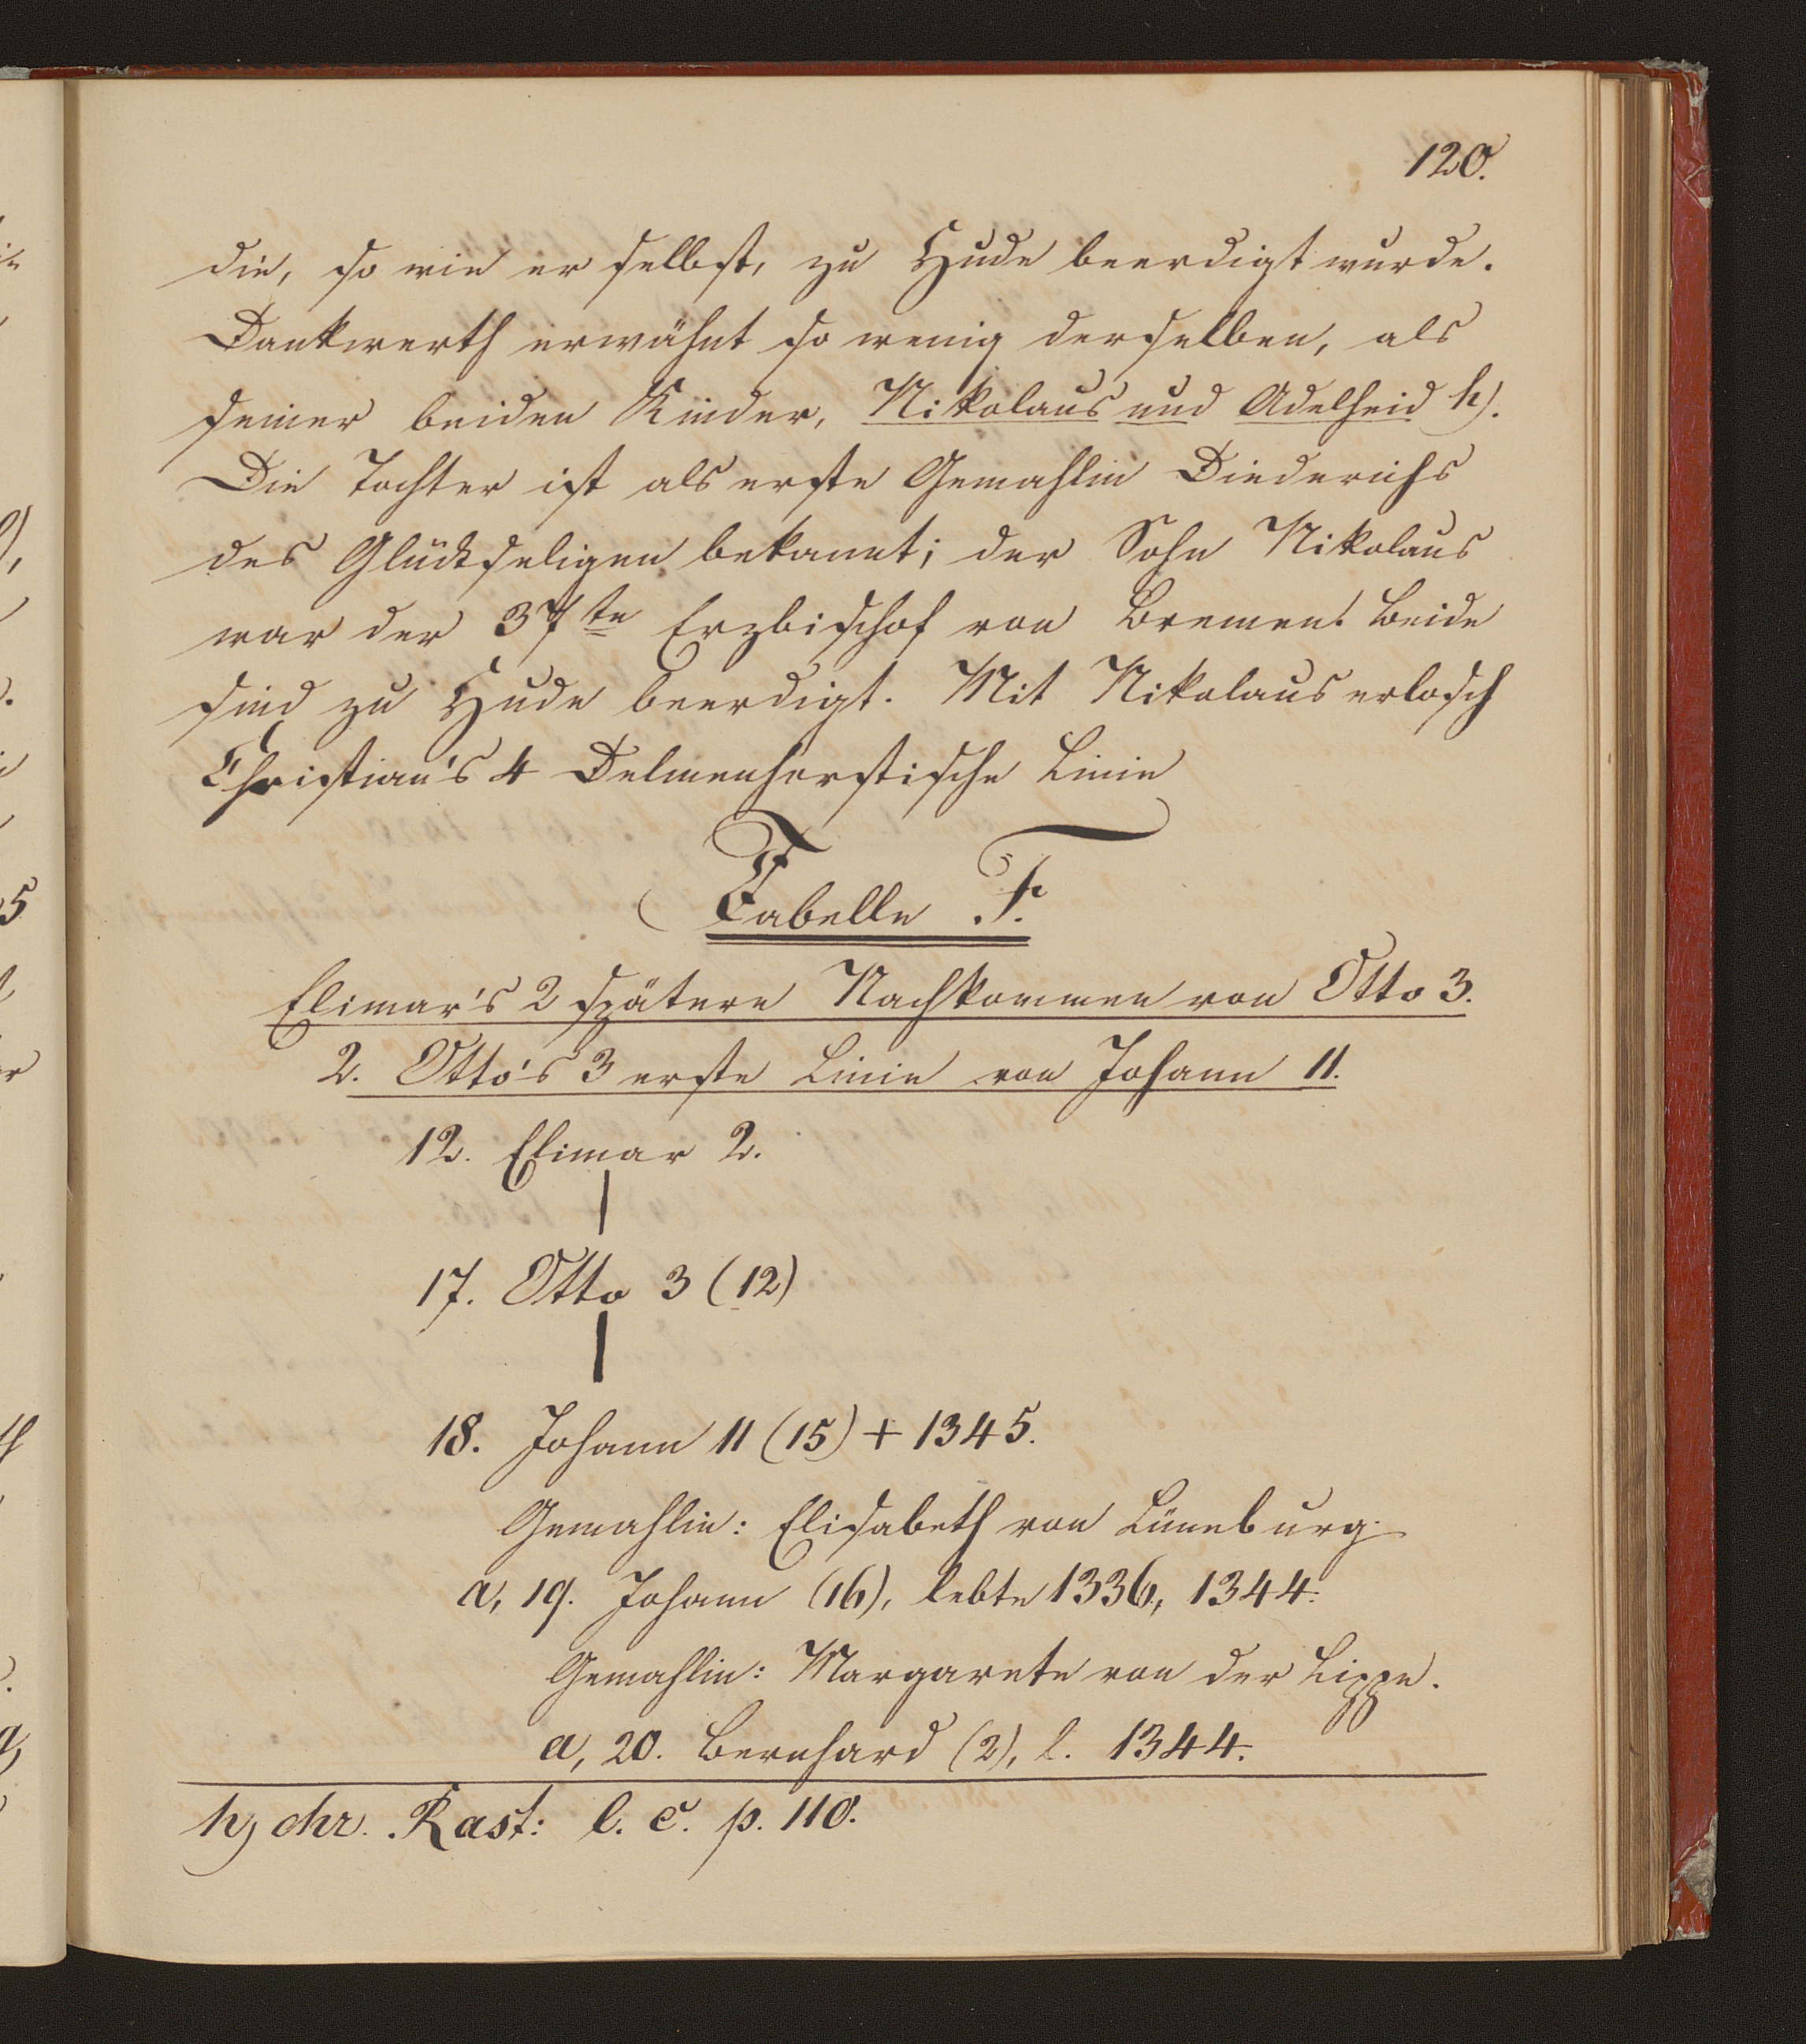 120.
die, so wie er selbst, zu Hude beerdigt wurde.
Dankwerth erwähnt so wenig derselben, als
seiner beiden Kinder, Nikolaus und Adelheid h).
Die Tochter ist als erste Gemahlin Diederichs
des Glückseligen bekannt; der Sohn Nikolaus
war der 37te Erzbischof von Bremen. Beide
sind zu Hude beerdigt. Mit Nikolaus erlosch
Christian's 4 Delmenhorstische Linie
Tabelle F.
Elimar's 2 spätere Nachkommen von Otto 3.
2. Otto's 3 erste Linie von Johann 11.
12. Elimar 2.
17. Otto 3 (12)
18. Johann 11 (15) + 1345.
Gemahlin: Elisabeth von Lüneburg.
a, 19. Johann (16), lebte 1336, 1344.
Gemahlin: Margarete von der Lippe.
a, 20. Bernhard (2), l. 1344.
h) chr. Rast: l. c. p. 110.